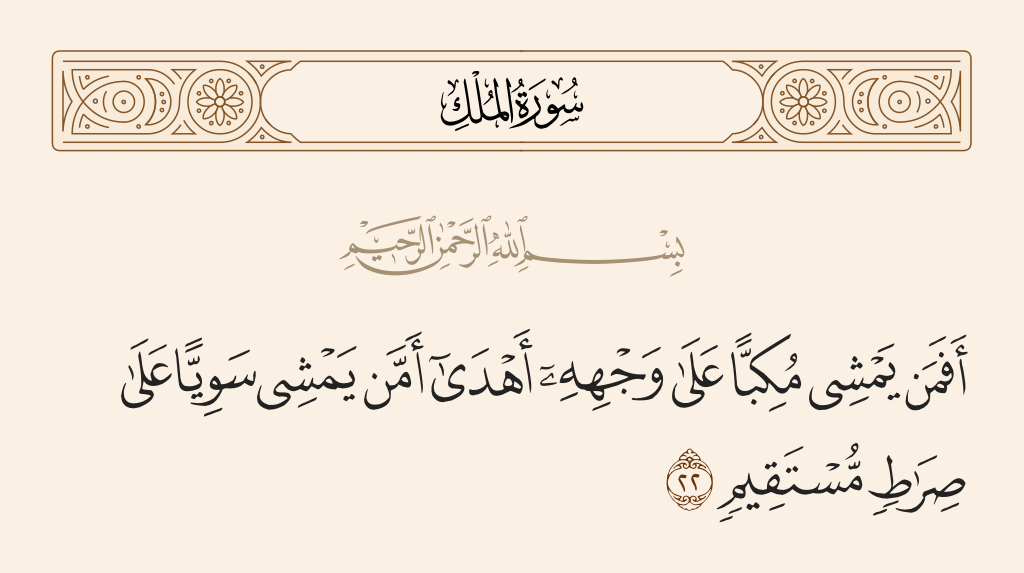 سُورَةُ المُلْكِ
بِسْمِ ٱللَّهِ ٱلرَّحْمَٰنِ ٱلرَّحِيمِ
أَفَمَن يَمْشِى مُكِبًّا عَلَىٰ وَجْهِهِۦٓ أَهْدَىٰٓ أَمَّن يَمْشِى سَوِيًّا عَلَىٰ
صِرَٰطٍ مُّسْتَقِيمٍ ٢٢